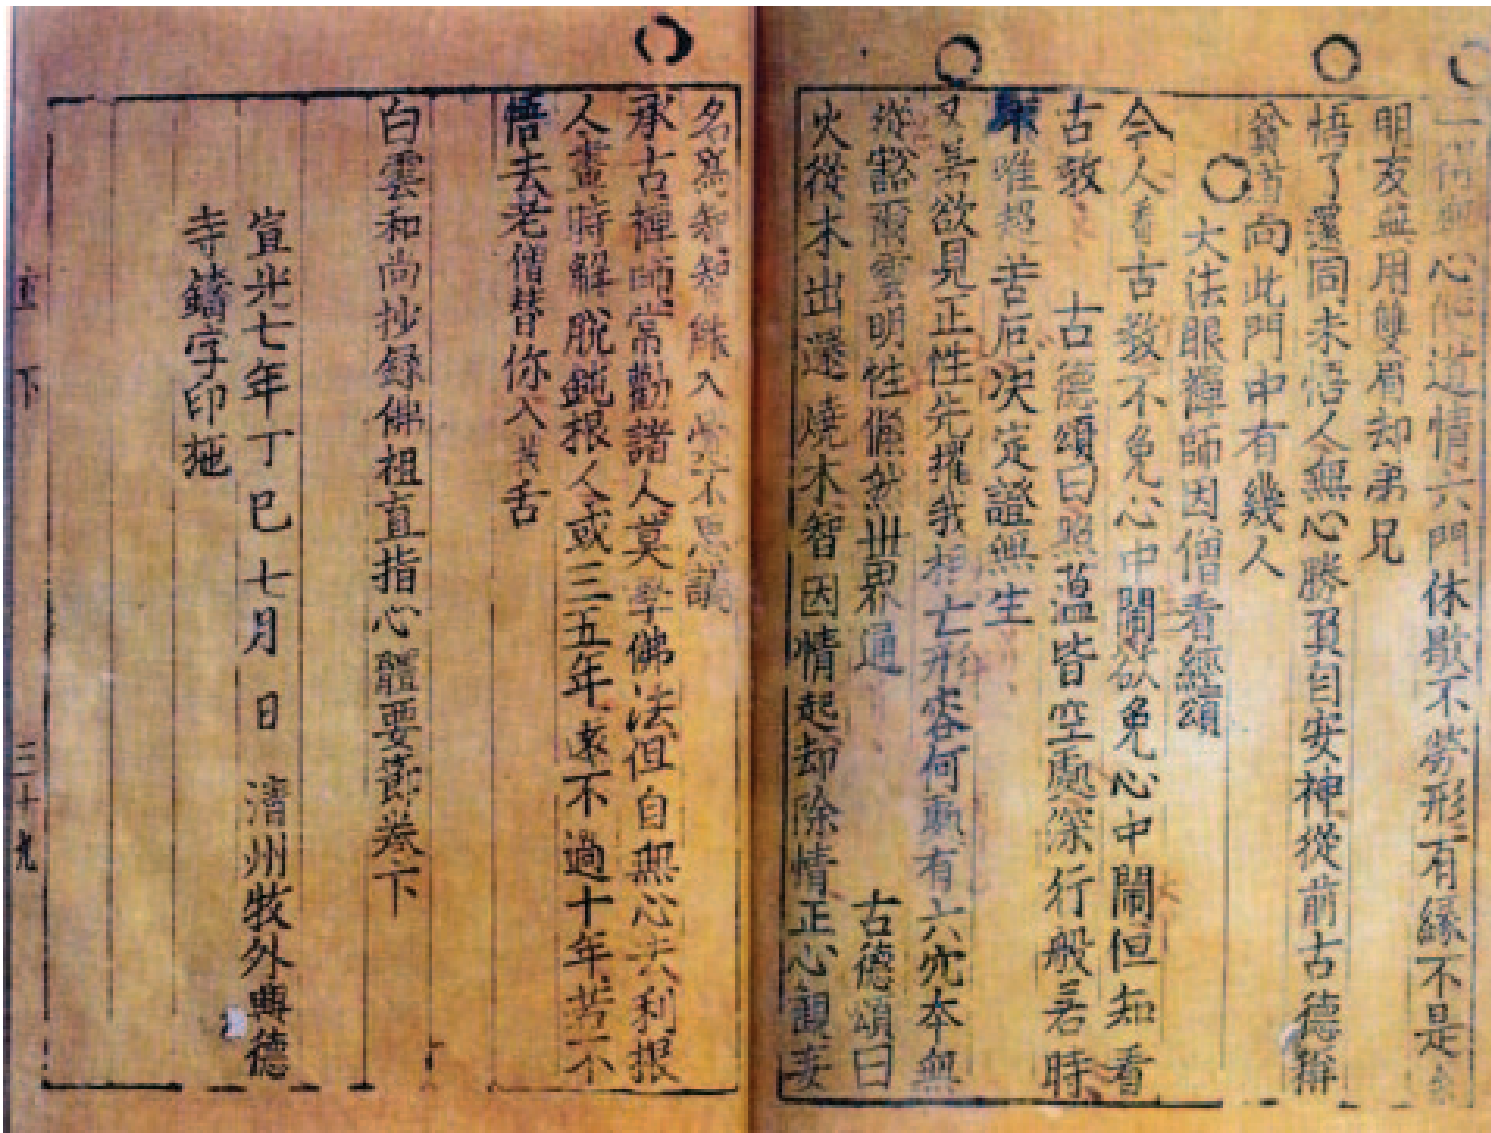 一得無心便道情六門休歇不勞形有緣不是余
朋友無用雙眉却弟兄
悟了還同未悟人無心勝負自安神從前古德稱
貧道向此門中有幾人
○大法眼禪師因僧看經頌
今人看古教不免心中鬧欲免心中鬧但知看
古教 古德頌曰照蘊皆空處深行般若時
唯超苦厄决定證無生
又善欲見正性先摧我相亡形容何處有六穴本無
縱豁爾靈明性翛然世界通 古德頌曰
火從木出還燒木智因情起却除情正心觀妄
名爲智智能入覺不思議
承古禪師常勸諸人莫學佛法但自無心去利根
人晝時解脫鈍根人或三五年遠不過十年若不
悟去老僧替你入拔舌
白雲和尚抄錄佛祖直指心體要節卷下
宣光七年丁巳七月 日 清州牧外興德
寺鑄字印施
直下 三十九